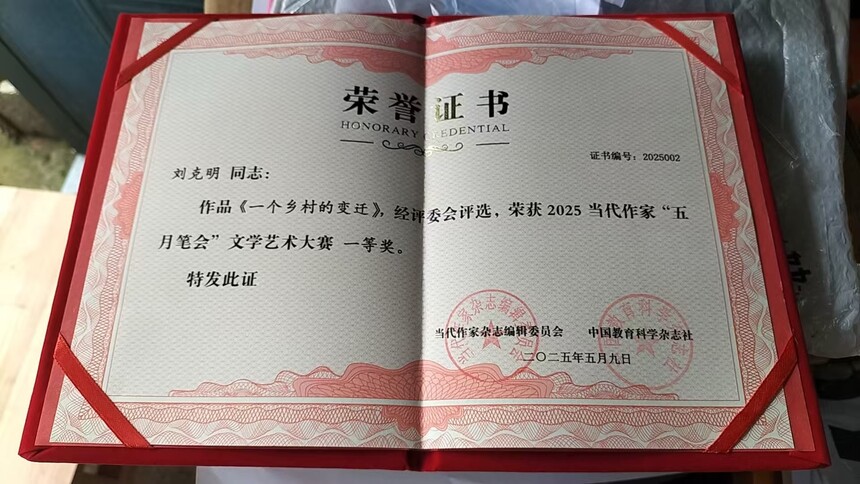 荣誉证书
HONORARY CREDENTIAL
证书编号：2025002
刘克明 同志：
作品《一个乡村的变迁》，经评委会评选，荣获 2025 当代作家“五
月笔会”文学艺术大赛 一等奖。
特发此证
当代作家杂志编辑委员会 中国教育科学杂志社
二〇二五年五月九日